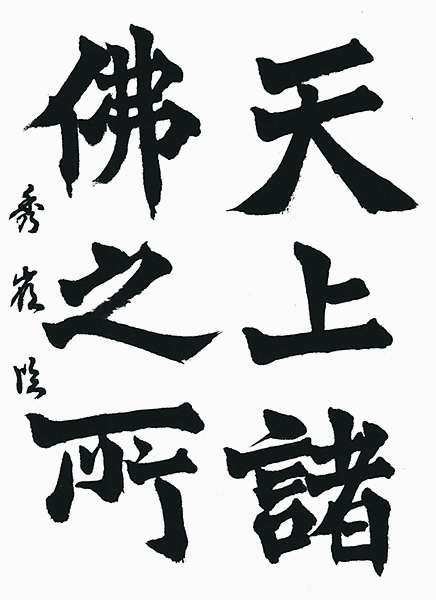 天上諸
佛之所
秀嶺臨